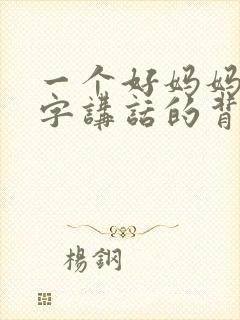 一个好妈妈
字講話的背
楊鋼